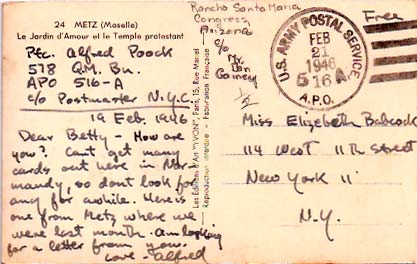 24 METZ (Moselle)
Le Jardin d'Amour et le Temple protestant
Pfc. Alfred Poock
578 Q.M. Bn.
APO 516-A
c/o Postmaster N.Y.C.
19 Feb. 1946
Dear Betty - How are
you? Cant get many
cards out here in Nor
mandy, so dont look for
any for awhile. Here is
one from Metz where we
were last month. Am looking
for a letter from you.
Love - Alfred
Les Editions d'Art "YVON", Paris, 15, Rue Martel
Reproduction interdite - Fabrication Française
Rancho Santa Maria
Congress,
Arizona
c/o
Mr. Dan
Gainey
U.S. ARMY POSTAL SERVICE
FEB
21
1946
516 A
A.P.O.
Free
Miss Elizabeth Babcock
114 West 11th Street
New York 11
N.Y.